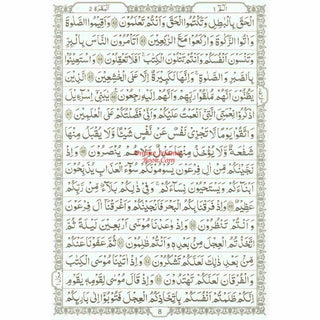 البقرة ٢
الٓمّٓ ١
الْحَقَّ بِالْبَاطِلِ وَتَكْتُمُوا الْحَقَّ وَاَنْتُمْ تَعْلَمُوْنَ وَاَقِيْمُوا الصَّلٰوةَ
وَاٰتُوا الزَّكٰوةَ وَارْكَعُوْا مَعَ الرّٰكِعِيْنَ اَتَاْمُرُوْنَ النَّاسَ بِالْبِرِّ
وَتَنْسَوْنَ اَنْفُسَكُمْ وَاَنْتُمْ تَتْلُوْنَ الْكِتٰبَ اَفَلَا تَعْقِلُوْنَ وَاسْتَعِيْنُوْا
بِالصَّبْرِ وَالصَّلٰوةِ وَاِنَّهَا لَكَبِيْرَةٌ اِلَّا عَلَى الْخٰشِعِيْنَ الَّذِيْنَ
يَظُنُّوْنَ اَنَّهُمْ مُّلٰقُوْا رَبِّهِمْ وَاَنَّهُمْ اِلَيْهِ رٰجِعُوْنَ يٰبَنِيْٓ اِسْرَآءِيْلَ
اذْكُرُوْا نِعْمَتِيَ الَّتِيْٓ اَنْعَمْتُ عَلَيْكُمْ وَاَنِّيْ فَضَّلْتُكُمْ عَلَى الْعٰلَمِيْنَ
وَاتَّقُوْا يَوْمًا لَّا تَجْزِيْ نَفْسٌ عَنْ نَّفْسٍ شَيْـًٔا وَّلَا يُقْبَلُ مِنْهَا
شَفَاعَةٌ وَّلَا يُؤْخَذُ مِنْهَا عَدْلٌ وَّلَا هُمْ يُنْصَرُوْنَ وَاِذْ
نَجَّيْنٰكُمْ مِّنْ اٰلِ فِرْعَوْنَ يَسُوْمُوْنَكُمْ سُوْٓءَ الْعَذَابِ يُذَبِّحُوْنَ
اَبْنَآءَكُمْ وَيَسْتَحْيُوْنَ نِسَآءَكُمْ وَفِيْ ذٰلِكُمْ بَلَآءٌ مِّنْ رَّبِّكُمْ
عَظِيْمٌ وَاِذْ فَرَقْنَا بِكُمُ الْبَحْرَ فَاَنْجَيْنٰكُمْ وَاَغْرَقْنَآ اٰلَ فِرْعَوْنَ
وَاَنْتُمْ تَنْظُرُوْنَ وَاِذْ وٰعَدْنَا مُوْسٰٓى اَرْبَعِيْنَ لَيْلَةً ثُمَّ
اتَّخَذْتُمُ الْعِجْلَ مِنْ بَعْدِهٖ وَاَنْتُمْ ظٰلِمُوْنَ ثُمَّ عَفَوْنَا عَنْكُمْ
مِّنْ بَعْدِ ذٰلِكَ لَعَلَّكُمْ تَشْكُرُوْنَ وَاِذْ اٰتَيْنَا مُوْسَى الْكِتٰبَ
وَالْفُرْقَانَ لَعَلَّكُمْ تَهْتَدُوْنَ وَاِذْ قَالَ مُوْسٰى لِقَوْمِهٖ يٰقَوْمِ
اِنَّكُمْ ظَلَمْتُمْ اَنْفُسَكُمْ بِاتِّخَاذِكُمُ الْعِجْلَ فَتُوْبُوْٓا اِلٰى بَارِئِكُمْ
8